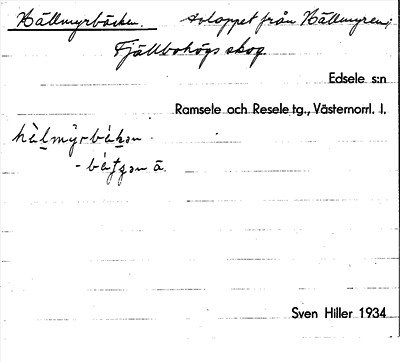 Hällmyrbäcken. avloppet från Hällmyren;
Fjällbohögs skog
Edsele s:n
Ramsele och Resele tg., Västernorrl. l.
hä̀lmỳrbäkən
- bätʃən ā.
Sven Hiller 1934